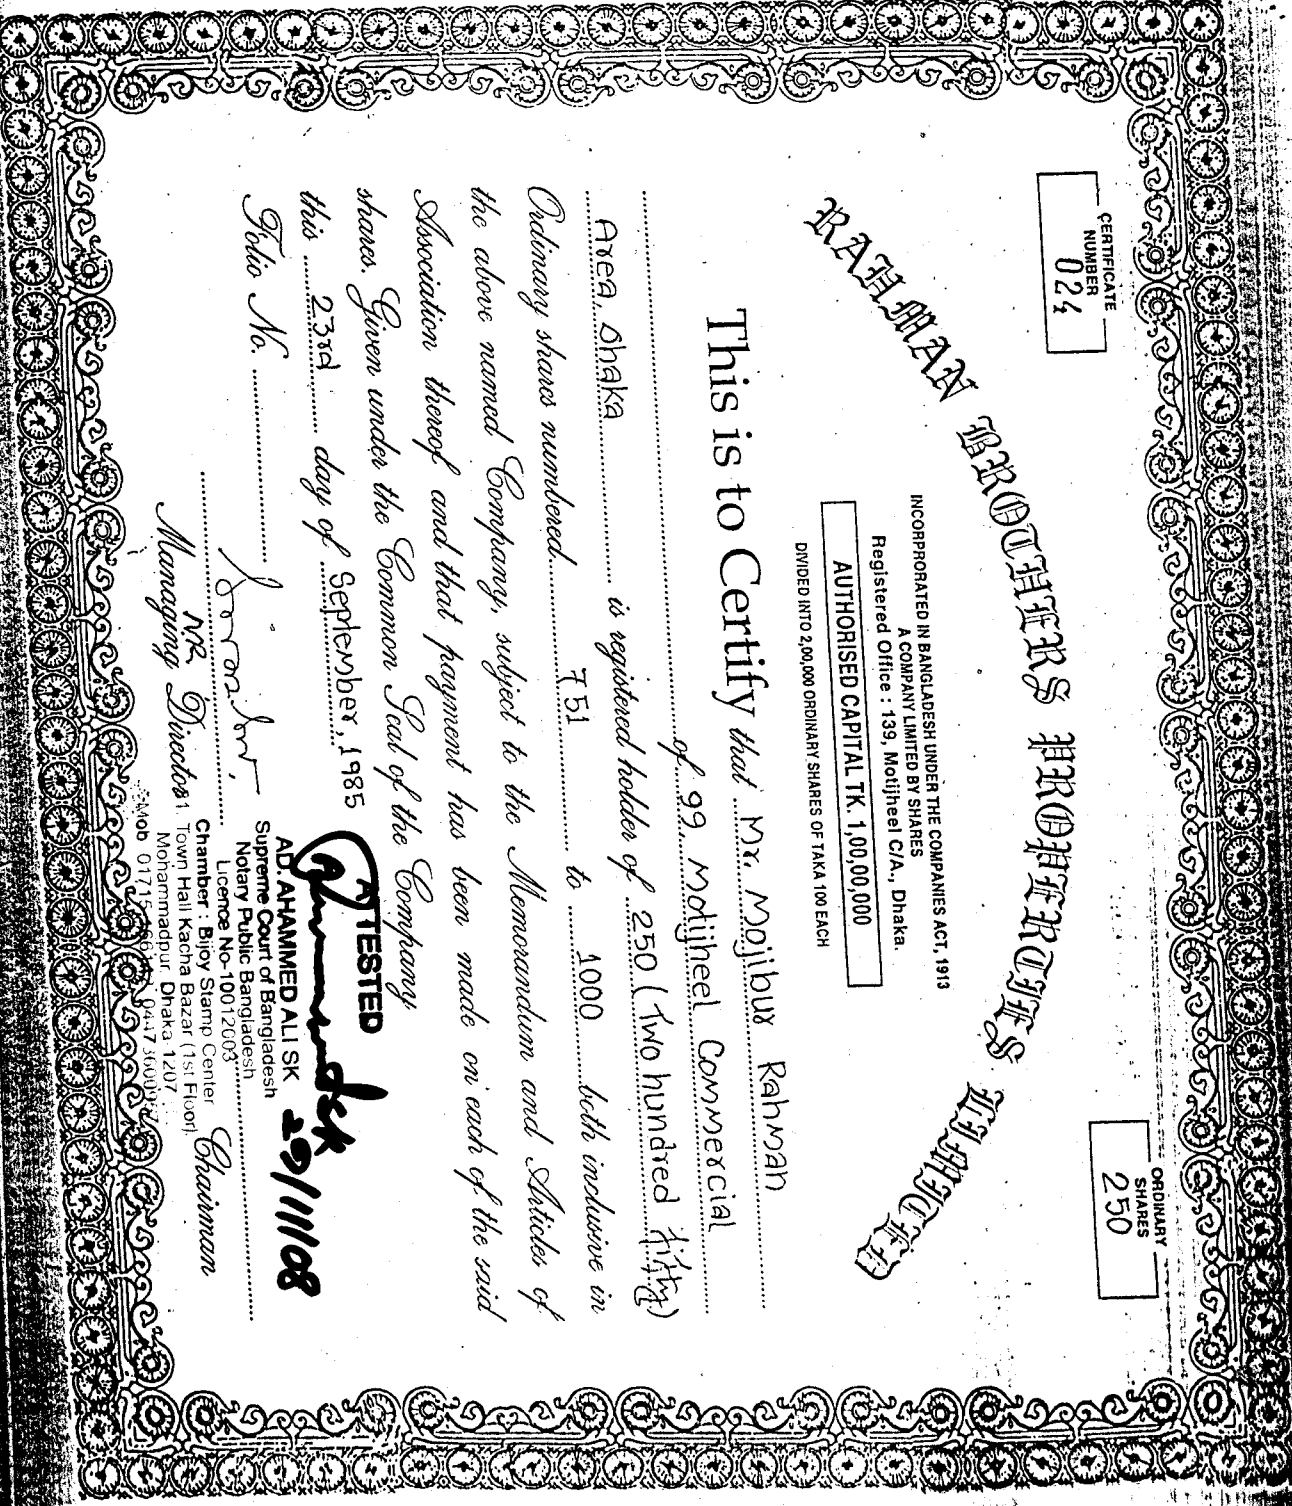 CERTIFICATE
NUMBER
024
ORDINARY
SHARES
250
RAHMAN BROTHERS PROPERTIES LIMITED
INCORPORATED IN BANGLADESH UNDER THE COMPANIES ACT, 1913
A COMPANY LIMITED BY SHARES
Registered Office : 139, Motijheel C/A., Dhaka.
AUTHORISED CAPITAL TK. 1,00,00,000
DIVIDED INTO 2,00,000 ORDINARY SHARES OF TAKA 100 EACH
This is to Certify that Mr. Mojibur Rahman
of 99, Motijheel Commercial
Area, Dhaka is registered holder of 250 (Two hundred fifty)
Ordinary shares numbered 751 to 1000 both inclusive in
the above named Company, subject to the Memorandum and Articles of
Association thereof and that payment has been made on each of the said
shares. Given under the Common Seal of the Company
this 23rd day of September, 1985
Folio No.
Managing Director
Chairman
ATTESTED
29/11/08
AD. AHAMMED ALI SK
Supreme Court of Bangladesh
Notary Public Bangladesh
Licence No-10012003
Chamber : Bijoy Stamp Center
Town Hall Kacha Bazar (1st Floor)
Mohammadpur, Dhaka 1207
Mob